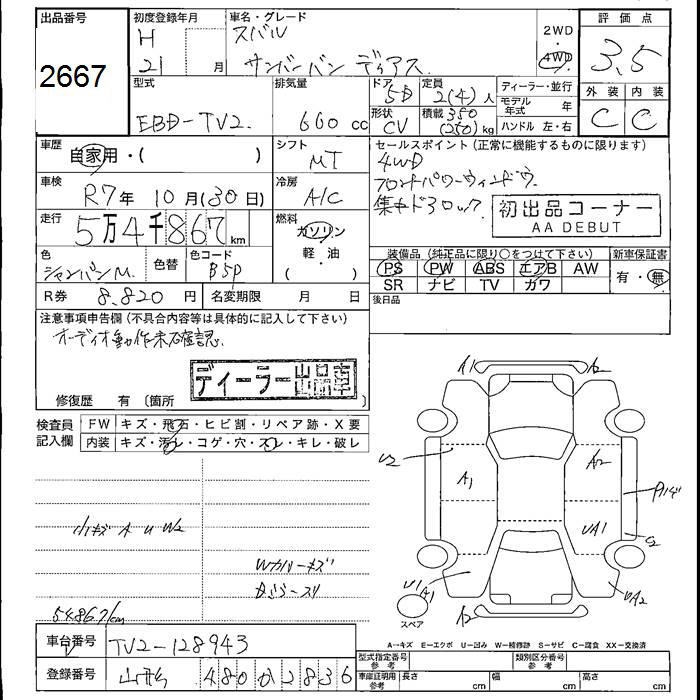 出品番号 2667
初度登録年月 H 21 月
車名・グレード スバル サンバーバン ディアス
2WD ・ 4WD
評価点 3.5
外装 内装
C C
型式 EBD-TV2
排気量 660 cc
ドア 5D 形状 CV
定員 2(4)人
積載 350 (250) kg
ディーラー・並行
モデル年式 年
ハンドル 左・右
車歴 自家用・( )
シフト MT
セールスポイント(正常に機能するものに限ります)
4WD
フロントパワーウィンドウ
集中ドアロック
初出品コーナー
AA DEBUT
車検 R7年 10月(30日)
冷房 A/C
走行 5万4千867 km
燃料 ガソリン
軽・油
( )
色 シャンパンM.
色替
色コード B5P
装備品(純正品に限り○をつけて下さい)
PS PW ABS エアB AW
SR ナビ TV カワ
新車保証書
有・無
R券 8,820 円
名変期限 月 日
後日品
注意事項申告欄(不具合内容等は具体的に記入して下さい)
オーディオ動作未確認
ディーラー出品車
修復歴 有 〔箇所 〕
検査員記入欄
FW キズ・飛石・ヒビ割・リペア跡・X要
内装 キズ・汚レ・コゲ・穴・スレ・キレ・破レ
小キズ A U W2
Wガリキズ
54867km
A1 A2
U2 A1 A2
UA1 C2
U1 A1 UA2
A2
スペア
A→キズ E→エクボ U→凹み W→補修跡 S→サビ C→腐食 XX→交換済
車台番号 TV2-128943
登録番号 山形 480 か 2836
型式指定番号 参考
類別区分番号 参考
車庫証明用 参考 長さ cm 幅 cm 高さ cm